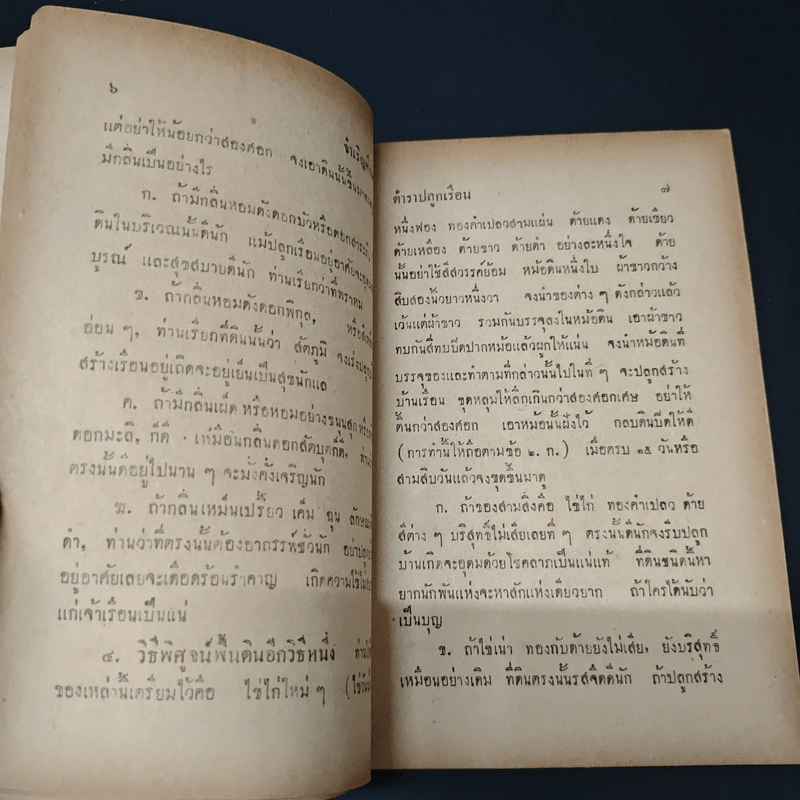 ๖
แต่อย่าให้น้อยกว่าสองศอก จงเอาดินนั้นขึ้นมา
มีกลิ่นเป็นอย่างไร
ก. ถ้ามีกลิ่นหอมดังดอกบัวหรือดอกสารภี
ดินในบริเวณนั้นดีนัก แม้ปลูกเรือนอยู่อาศัยจะ
บูรณ์ และสุขสบายดีนัก ท่านเรียกว่าที่พราหม
ข. ถ้ากลิ่นหอมดังดอกพิกุล, หรือ
อ่อน ๆ, ท่านเรียกที่ดินนั้นว่า สัตภูมิ จงเร่งปลูก
สร้างเรือนอยู่เถิดจะอยู่เย็นเป็นสุขนักแล
ค. ถ้ามีกลิ่นเผ็ด หรือหอมอย่างขนุนสุก
ดอกมะลิ, ก็ดี เหมือนกลิ่นดอกสัตบุตก็ดี,
ตรงนั้นดีอยู่ไปนาน ๆ จะมั่งคั่งเจริญนัก
ฆ. ถ้ากลิ่นเหม็นเปรี้ยว เค็ม ฉุน ลักษณ
ดำ, ท่านว่าที่ตรงนั้นต้องอาถรรพ์ชั่วนัก อย่าปลูก
อยู่อาศัยเลยจะเดือดร้อนรำคาญ เกิดความไข้
แก่เจ้าเรือนเป็นแน่
๔. วิธีพิศูจน์พื้นดินอีกวิธีหนึ่ง ท่าน
ของเหล่านี้เตรียมไว้คือ ไข่ไก่ใหม่ ๆ
ตำราปลูกเรือน ๗
หนึ่งฟอง ทองคำเปลวสามแผ่น ด้ายแดง ด้ายเขียว
ด้ายเหลือง ด้ายขาว ด้ายดำ อย่างละหนึ่งใจ ด้าย
นั้นอย่าใช้สีสวรรค์ย้อม หม้อดินหนึ่งใบ ผ้าขาวกว้าง
สิบสองนิ้วยาวหนึ่งวา จงนำของต่าง ๆ ดังกล่าวแล้ว
เว้นแต่ผ้าขาว รวมกันบรรจุลงในหม้อดิน เอาผ้าขาว
ทบกันสี่ทบปิดปากหม้อแล้วผูกให้แน่น จงนำหม้อดินที่
บรรจุของและทำตามที่กล่าวนั้นไปในที่ ๆ จะปลูกสร้าง
บ้านเรือน ขุดหลุมให้ลึกเกินกว่าสองศอกเศษ อย่าให้
ตื้นกว่าสองศอก เอาหม้อนั้นฝังไว้ กลบดินปิดให้ดี
(การทำนี้ให้ถือตามข้อ ๒. ก.) เมื่อครบ ๑๕ วันหรือ
สามสิบวันแล้วจงขุดขึ้นมาดู
ก. ถ้าของสามสิ่งคือ ไข่ไก่ ทองคำเปลว ด้าย
สีต่าง ๆ บริสุทธิ์ไม่เสียเลยที่ ๆ ตรงนั้นดีนักจงรีบปลูก
บ้านเกิดจะอุดมด้วยโชคลาภเป็นแน่แท้ ที่ดินชนิดนี้หา
ยากนักพันแห่งจะหาสักแห่งเดียวยาก ถ้าใครได้นับว่า
เป็นบุญ
ข. ถ้าไข่เน่า ทองกับด้ายยังไม่เสีย, ยังบริสุทธิ์
เหมือนอย่างเดิม ที่ดินตรงนั้นรสจืดดีนัก ถ้าปลูกสร้าง